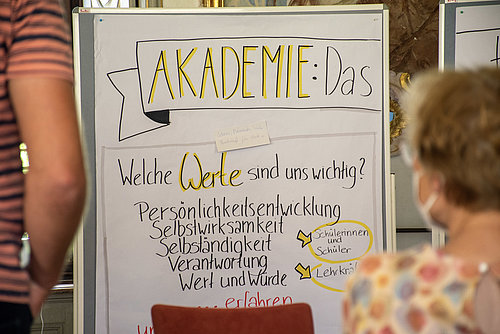 AKADEMIE: Das
Welche Werte sind uns wichtig?
Persönlichkeitsentwicklung
Selbstwirksamkeit
Selbständigkeit
Verantwortung
Wert und Würde
Schülerinnen
und
Schüler
Lehrkrä
... erfahren